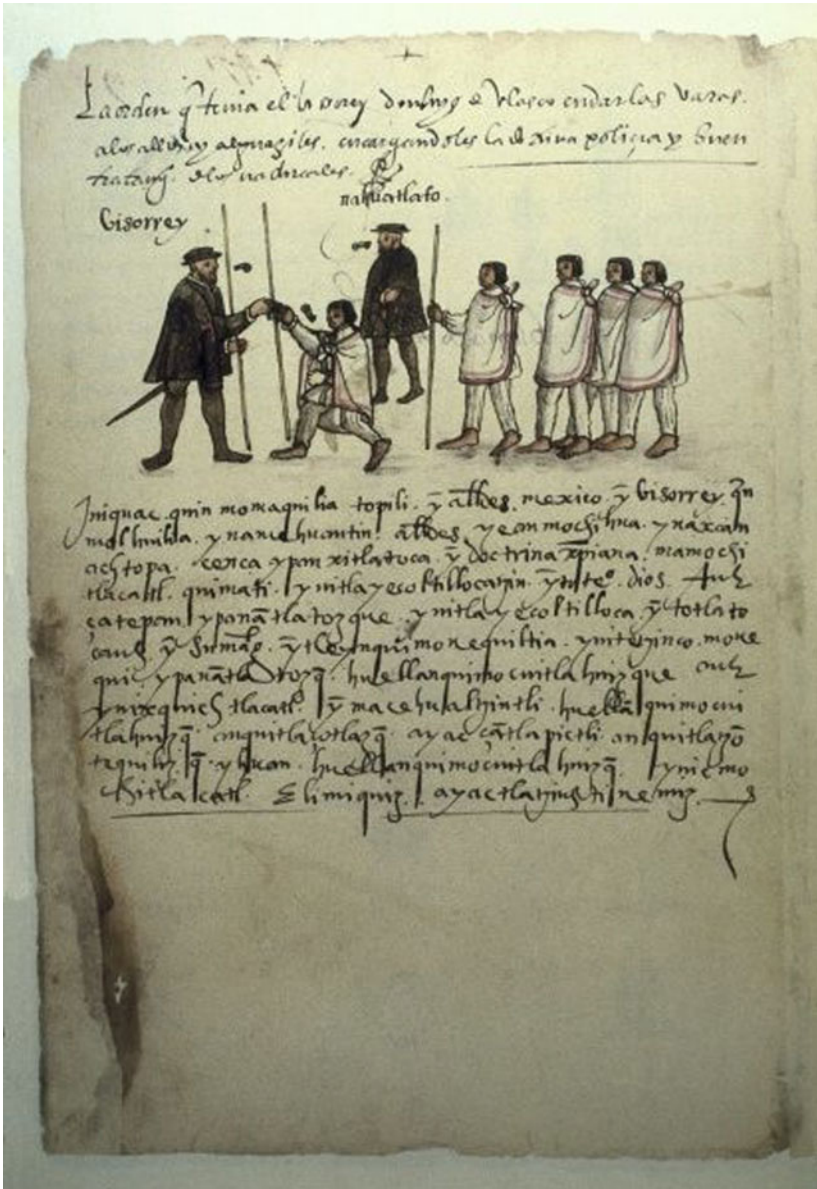 La orden q̃ tenia el visorrey don luys de Velasco en dar las varas.
a los alldes y alguaziles. encargandoles la doctrina poliçia y buen
tratamyº. de los naturales.
nahuatlato.
Visorrey
Iniquac quin momaquilia topili. ȳ alldes. mexico ȳ Visorrey. qn
molhuilia. ynamehuantin alldes. ye anmochihua. yn axcan
achtopa. cenca ypan xitlatoca. ȳ doctrina xp̄iana. mamochi
tlacatl. quimati. ynitlayecoltillocatzin. ȳ tote⁰. dios. Auh
çatepan. ypan ātlatozque. ynitlayecoltilloca ȳ totlato
cauh ȳ Su mag. ȳ tleynquimonequiltia. ynitechcinco. mone
qui. ypan ātlatozq̄. huellanquimocuitlahuizque auh
ynixquich tlacatl. ȳ macehualtzintli. huellā quimocui
tlahuizq̄. anquitlaçotlazq̄. ayac çātlapictli. anquitlayo
tequilizq̄. yhuan. huellanquimocuitlahuizq̄. ynic mo
chitlacatl. Elimiquiz. ayac tlatziuhtinemiz.